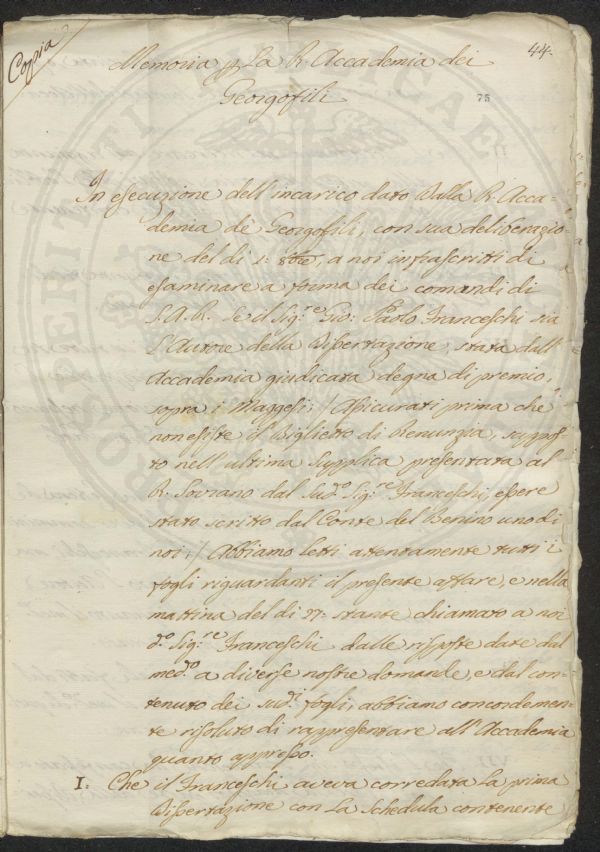 Copia
44.
Memoria p. La R. Accademia dei
Georgofili
75
In esecuzione dell'incarico dato dalla R. Acca=
demia de Georgofili, con sua deliberazio=
ne del dì 1: 8bre, a noi infrascritti di
esaminare a forma dei comandi di
S.A.R. se il Sig.re Gio: Paolo Franceschi sia
L'Autore della Dissertazione, stata dall'
Accademia giudicata degna di premio,
sopra i Maggesi; / Assicurati prima che
non esiste il Biglietto di Renunzia, suppos=
to nell'ultima Supplica presentata al
R. Sovrano dal Sud.o Sig.re Franceschi, essere
stato scritto dal Conte del Benino uno di
noi; / Abbiamo letti atentamente tutti i
fogli riguardanti il presente affare, e nella
mattina del dì 27: stante chiamato a noi
d.o Sig.re Franceschi dalle risposte date dal
med.o a diverse nostre domande, e dal con=
tenuto dei sud.i fogli, abbiamo concordemen=
te risoluto di rappresentare all'Accademia
quanto appresso.
I: Che il Franceschi aveva corredata La prima
Dissertazione con La Schedula contenente